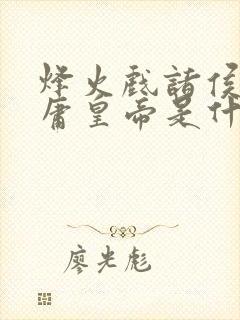 烽火戏诸侯
庸皇帝是什
廖光彪